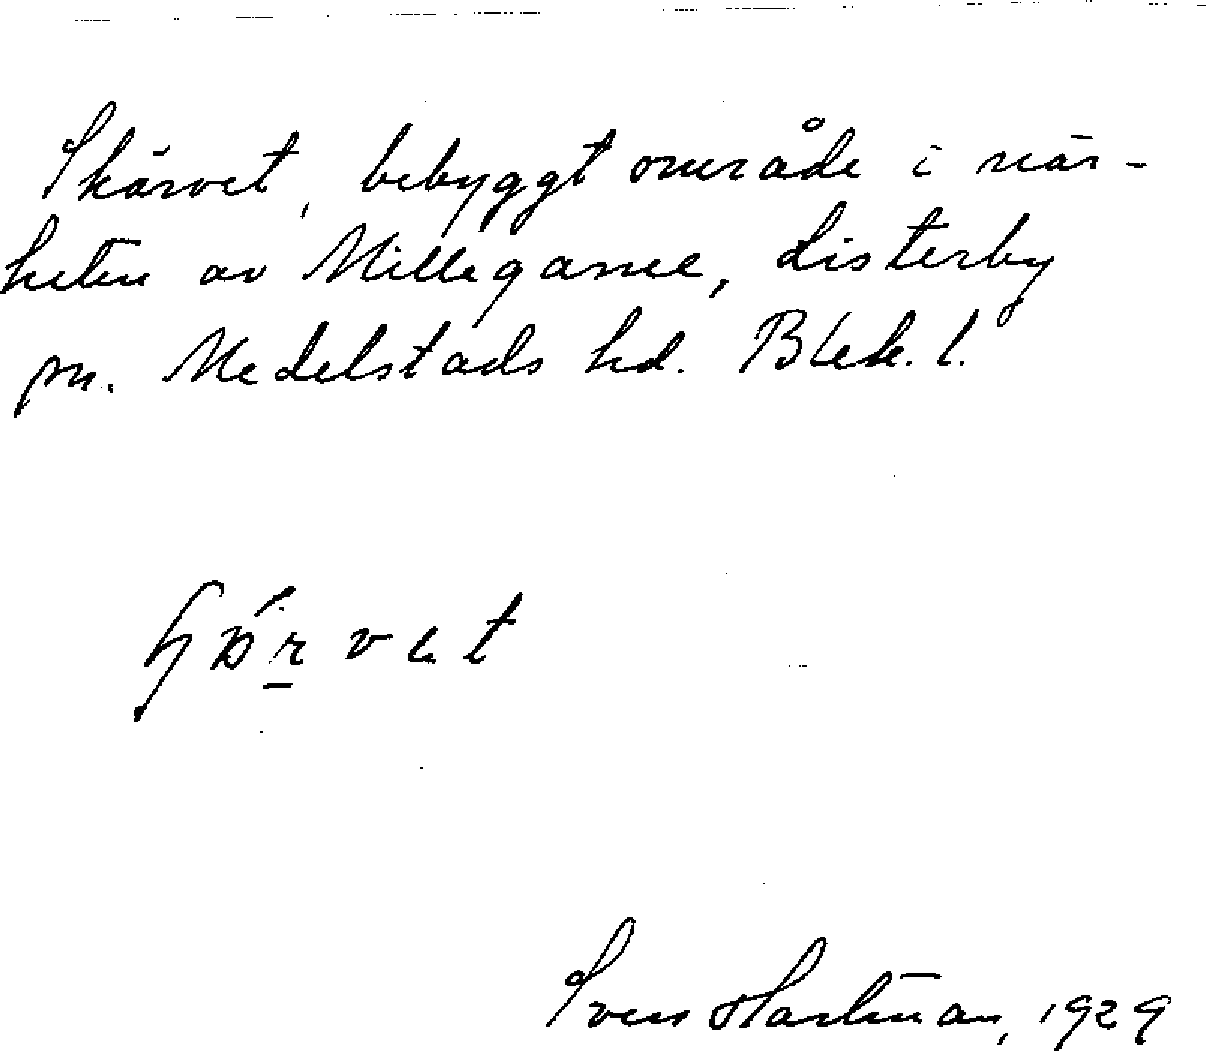 Skärvet, bebyggt område i när-
heten av Millegarne, Listerby
sn. Medelstads hd. Blek. l.
Sven Hartman, 1929